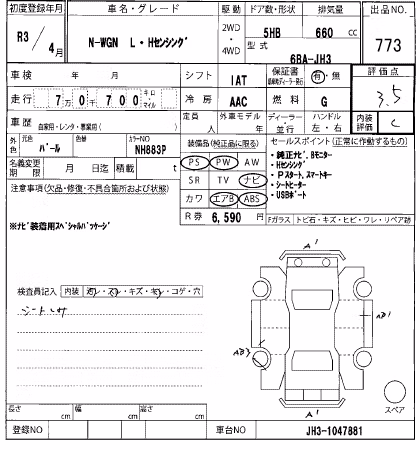 初度登録年月 車名・グレード 駆動 ドア数・形状 排気量 出品NO.
R3/4月 N-WGN L・Hセンシング 2WD・4WD 5HB 660 cc 773
型式
6BA-JH3
車検 年 月 シフト IAT 保証書 有・無 評価点
3.5
走行 7万0千700 キロ マイル 冷房 AAC 燃料 G
車歴 自家用・レンタ・事業用( ) 定員 人 外車モデル 年 ディーラー・並行 ハンドル 左・右 内装評価 C
外色 元色 パール 色替 カラーNO NH883P
名義変更期限 月 日 迄 積載 t
装備品(純正品に限る) セールスポイント(正常に作動するもの)
PS PW AW
SR TV ナビ
カワ エアB ABS
・純正ナビ、Bモニター
・Hセンシング
・Pスタート、スマートキー
・シートヒーター
・USBポート
注意事項(欠品・修復・不具合箇所および状態)
R券 6,590 円 Fガラス トビ石・キズ・ヒビ・ワレ・リペア跡
※ナビ装着用スペシャルパッケージ
検査員記入 内装 コゲ・穴
A1
AB1
A1
スペア
長さ cm 幅 cm 高さ cm
登録NO 車台NO JH3-1047881